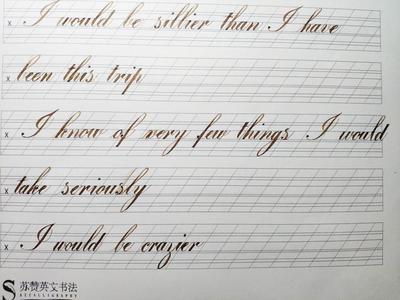 I would be sillier than I have
x been this trip
x I know of very few things I would
x take seriously
x I would be crazier
S 苏赞英文书法
SZCALLIGRAPHY